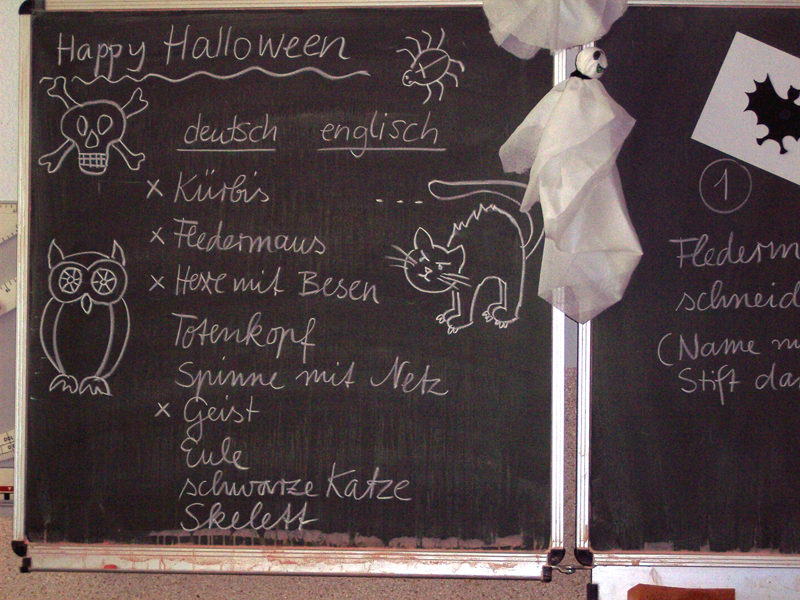 Happy Halloween
deutsch englisch
x Kürbis - - - -
x Fledermaus
x Hexe mit Besen
Totenkopf
Spinne mit Netz
x Geist
Eule
schwarze Katze
Skelett
1
Flederm
schneid
(Name m
Stift da